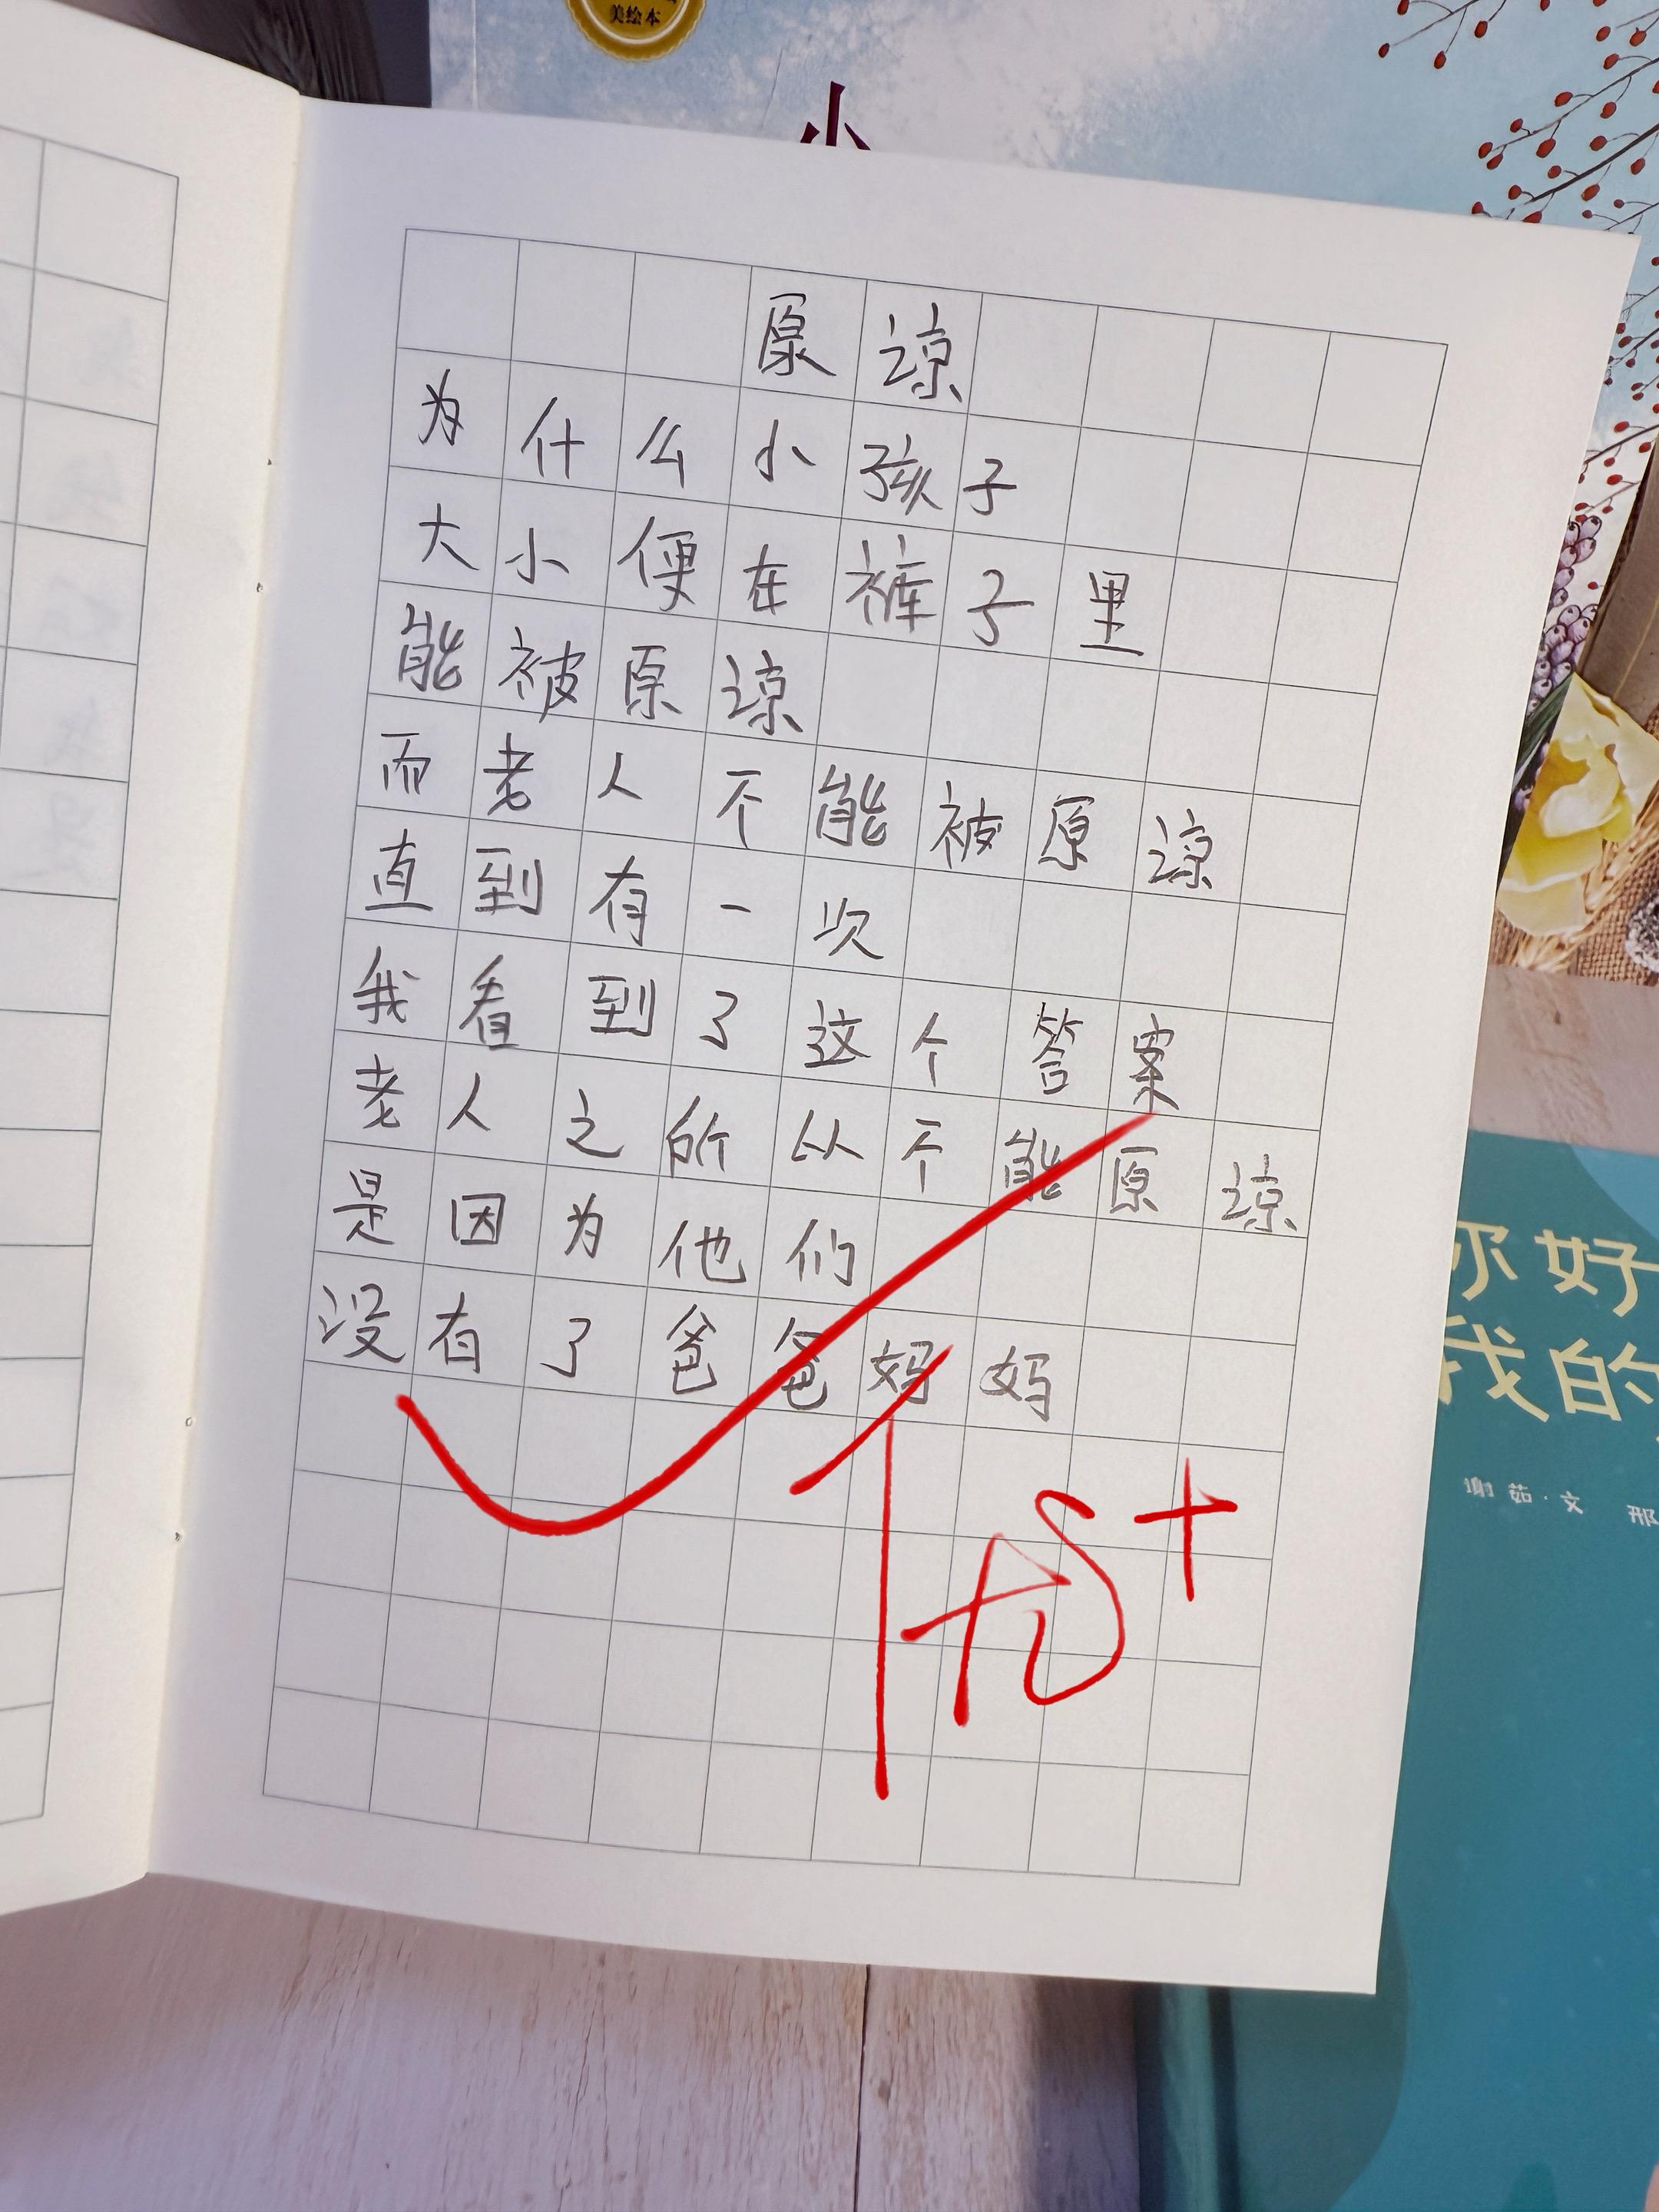 美绘本
小
原谅
为什么小孩子
大小便在裤子里
能被原谅
而老人不能被原谅
直到有一次
我看到了这个答案
老人之所以不能原谅
是因为他们
没有了爸爸妈妈
优+
你好
我的
谢茹·文 邢